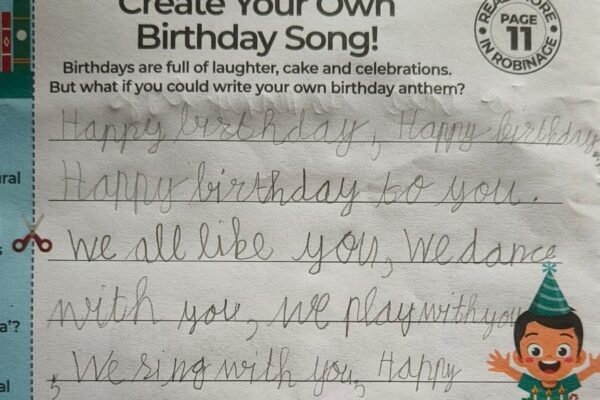 Create Your Own
Birthday Song!
READ MORE
PAGE
11
IN ROBINAGE
Birthdays are full of laughter, cake and celebrations.
But what if you could write your own birthday anthem?
Happy birthday, Happy birthday,
Happy birthday to you.
We all like you, We dance
with you, we play with you
, We sing with you, Happy
ural
s
a'?
al